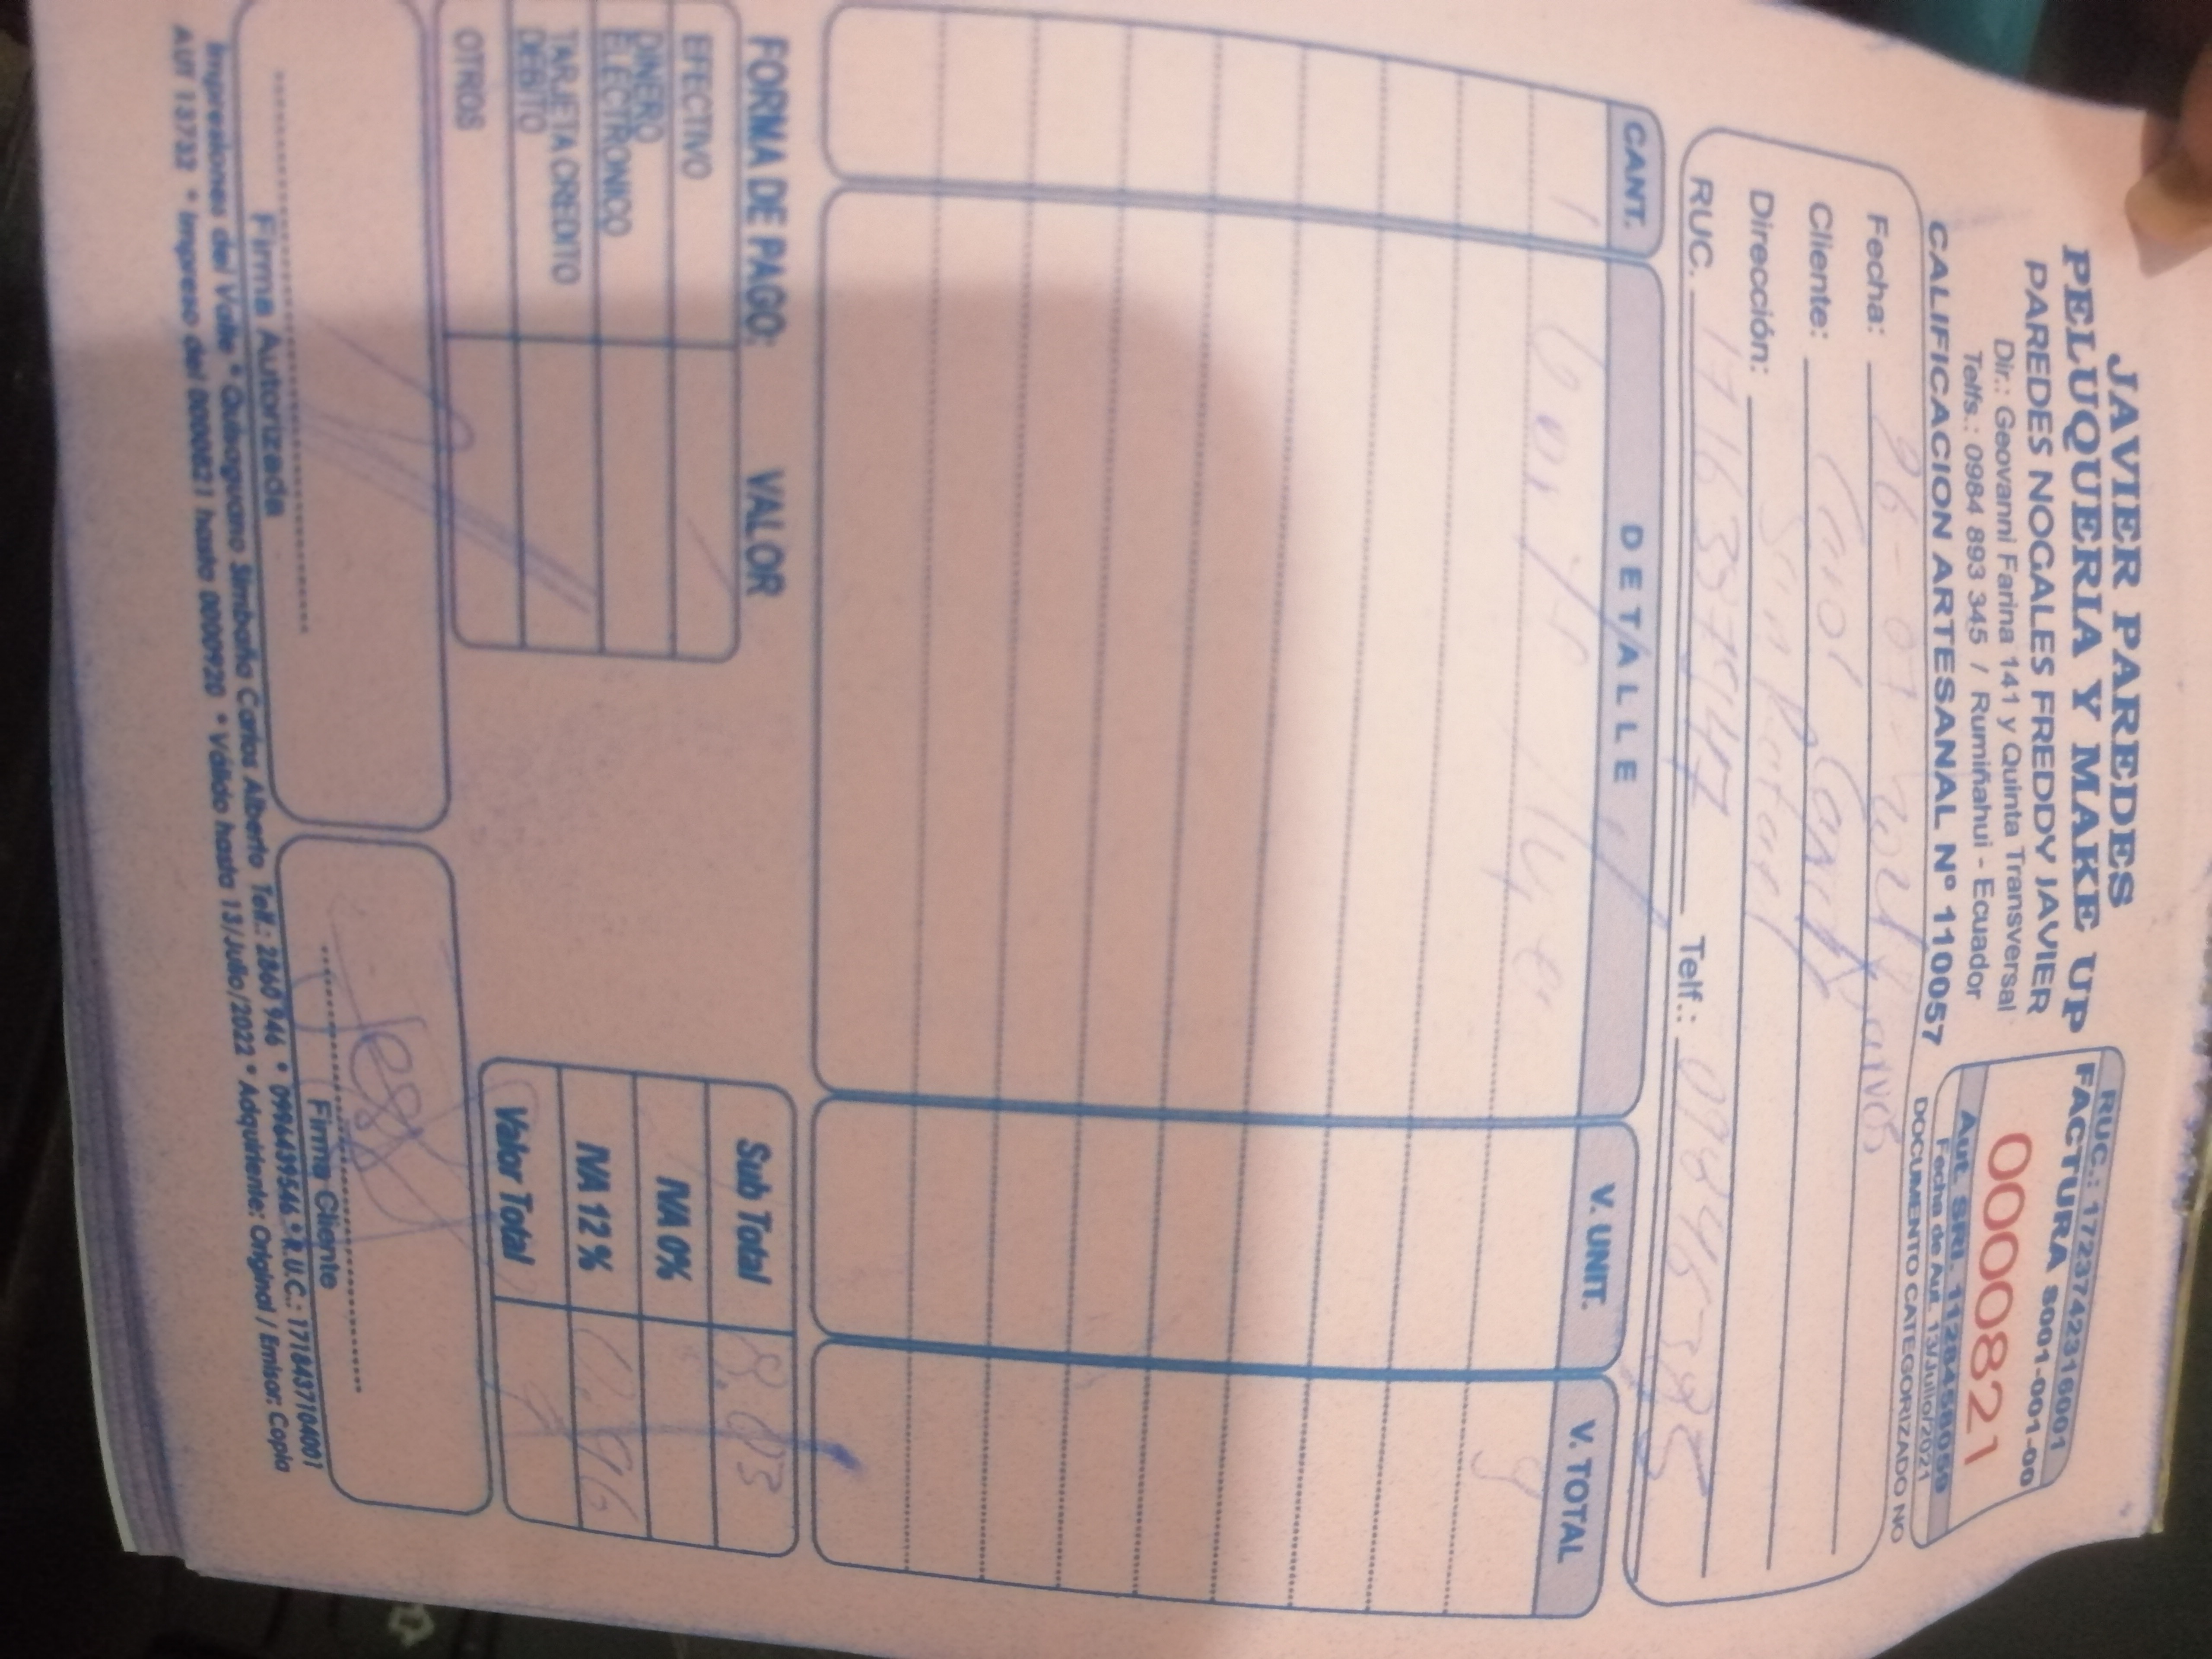 JAVIER PAREDES
PELUQUERIA Y MAKE UP
PAREDES NOGALES FREDDY JAVIER
Dir.: Geovanni Farina 141 y Quinta Transversal
Telfs.: 0984 893 345 / Rumiñahui - Ecuador
CALIFICACION ARTESANAL Nº 110057
RUC.: 1723742316001
FACTURA S001-001-00
0000821
Aut. SRI. 1128458059
Fecha de Aut. 13/Julio/2021
DOCUMENTO CATEGORIZADO NO
Fecha: 26-07-2021
Cliente: Carol
Dirección: San Rafael
RUC. 1716337547 Telf.:
CANT. DETALLE V. UNIT. V. TOTAL
1 9
FORMA DE PAGO: VALOR
EFECTIVO
DINERO ELECTRONICO
TARJETA CREDITO DEBITO
OTROS
Sub Total 8.03
IVA 0%
IVA 12 % 0.96
Valor Total
Firma Autorizada
Firma Cliente
Impresiones del Valle * Quinaguano Simbaña Carlos Alberto Telf.: 2860 946 * 0996439546 * R.U.C.: 1718437104001
AUT 13732 * Impreso del 0000821 hasta 0000920 * Válido hasta 13/Julio/2022 * Adquiriente: Original / Emisor: Copia